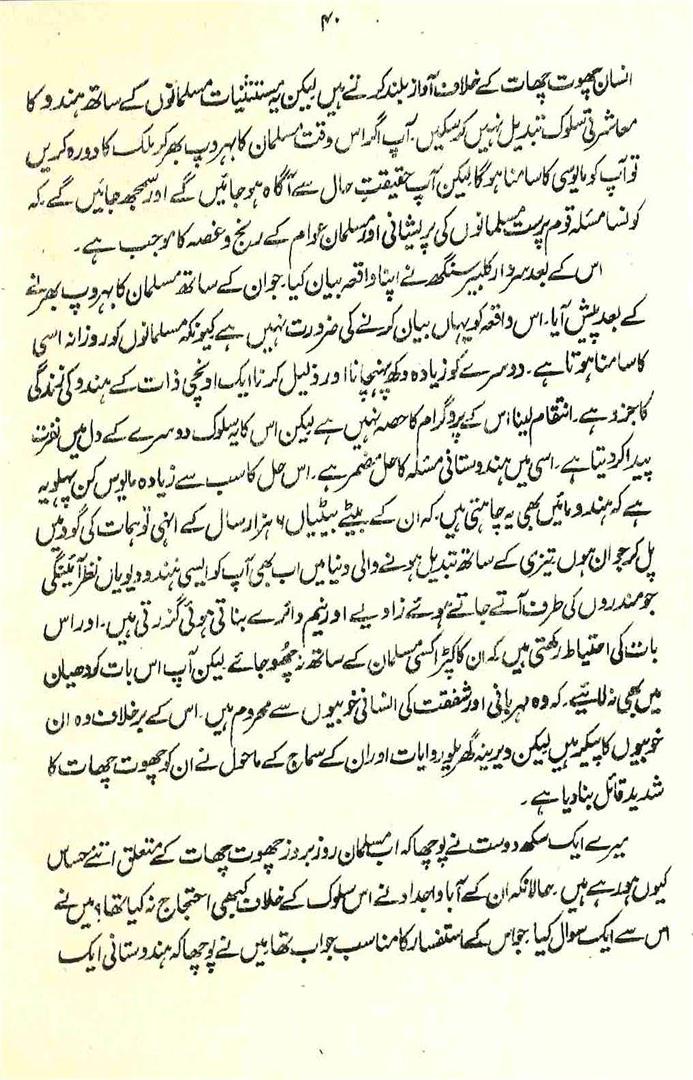 ۴۰
انسان چھوت چھات کے خلاف آواز بلند کرتے ہیں لیکن یہ مستثنیات مسلمانوں کے ساتھ ہندو کا
معاشرتی سلوک تبدیل نہیں کر سکیں۔ آپ اگر اس وقت مسلمان کا بہروپ بھر کر ملک کا دورہ کریں
تو آپ کو مایوسی کا سامنا ہوگا لیکن آپ حقیقتِ حال سے آگاہ ہو جائیں گے اور سمجھ جائیں گے۔ کہ
کونسا مسئلہ قوم پرست مسلمانوں کی پریشانی اور مسلمان عوام کے رنج و غصہ کا موجب ہے۔
اس کے بعد سردار کلبیر سنگھ نے اپنا واقعہ بیان کیا۔ جو ان کے ساتھ مسلمان کا بہروپ بھرنے
کے بعد پیش آیا۔ اس واقعہ کو یہاں بیان کرنے کی ضرورت نہیں ہے کیونکہ مسلمانوں کو روزانہ اسی
کا سامنا ہوتا ہے۔ دوسرے کو زیادہ دکھ پہنچانا اور ذلیل کرنا ایک اونچی ذات کے ہندو کی زندگی
کا جزو ہے۔ انتقام لینا اس کے پروگرام کا حصہ نہیں ہے لیکن اس کا یہ سلوک دوسرے کے دل میں نفرت
پیدا کر دیتا ہے۔ اسی میں ہندوستانی مسئلہ کا حل مضمر ہے۔ اس حل کا سب سے زیادہ مایوس کن پہلو یہ
ہے کہ ہندو مائیں بھی یہ چاہتی ہیں۔ کہ ان کے بیٹے بیٹیاں ۶ ہزار سال کے انہی توہمات کی گود میں
پل کر جوان ہوں۔ تیزی کے ساتھ تبدیل ہونے والی دنیا میں اب بھی آپ کو ایسی ہندو دیویاں نظر آئینگی
جو مندروں کی طرف آتے جاتے ہوئے زاویے اور نیم دائرے بناتی ہوئی گزرتی ہیں۔ اور اس
بات کی احتیاط رکھتی ہیں کہ ان کا کپڑا کسی مسلمان کے ساتھ نہ چھُو جائے لیکن آپ اس بات کو دھیان
میں بھی نہ لائیے۔ کہ وہ مہربانی اور شفقت کی انسانی خوبیوں سے محروم ہیں۔ اس کے برخلاف وہ ان
خوبیوں کا پیکر ہیں لیکن دیرینہ گھریلو روایات اور ان کے سماج کے ماحول نے ان کو چھوت چھات کا
شدید قائل بنا دیا ہے۔
میرے ایک سکھ دوست نے پوچھا کہ اب مسلمان روز بروز چھوت چھات کے متعلق اتنے حساس
کیوں ہو رہے ہیں۔ حالانکہ ان کے آبا و اجداد نے اس سلوک کے خلاف کبھی احتجاج نہ کیا تھا؟ میں نے
اس سے ایک سوال کیا۔ جو اس کے استفسار کا مناسب جواب تھا۔ میں نے پوچھا کہ ہندوستانی ایک